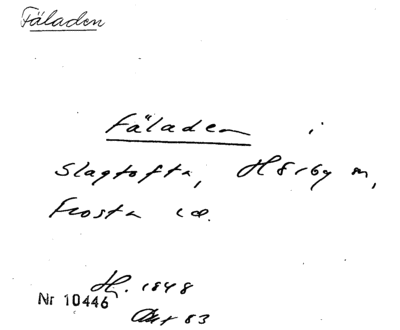 Fäladen
Fäladen i
Slagtofta, Hörby sn,
Frosta hd.
Hj. 1848
Nr 10446
Akt 83